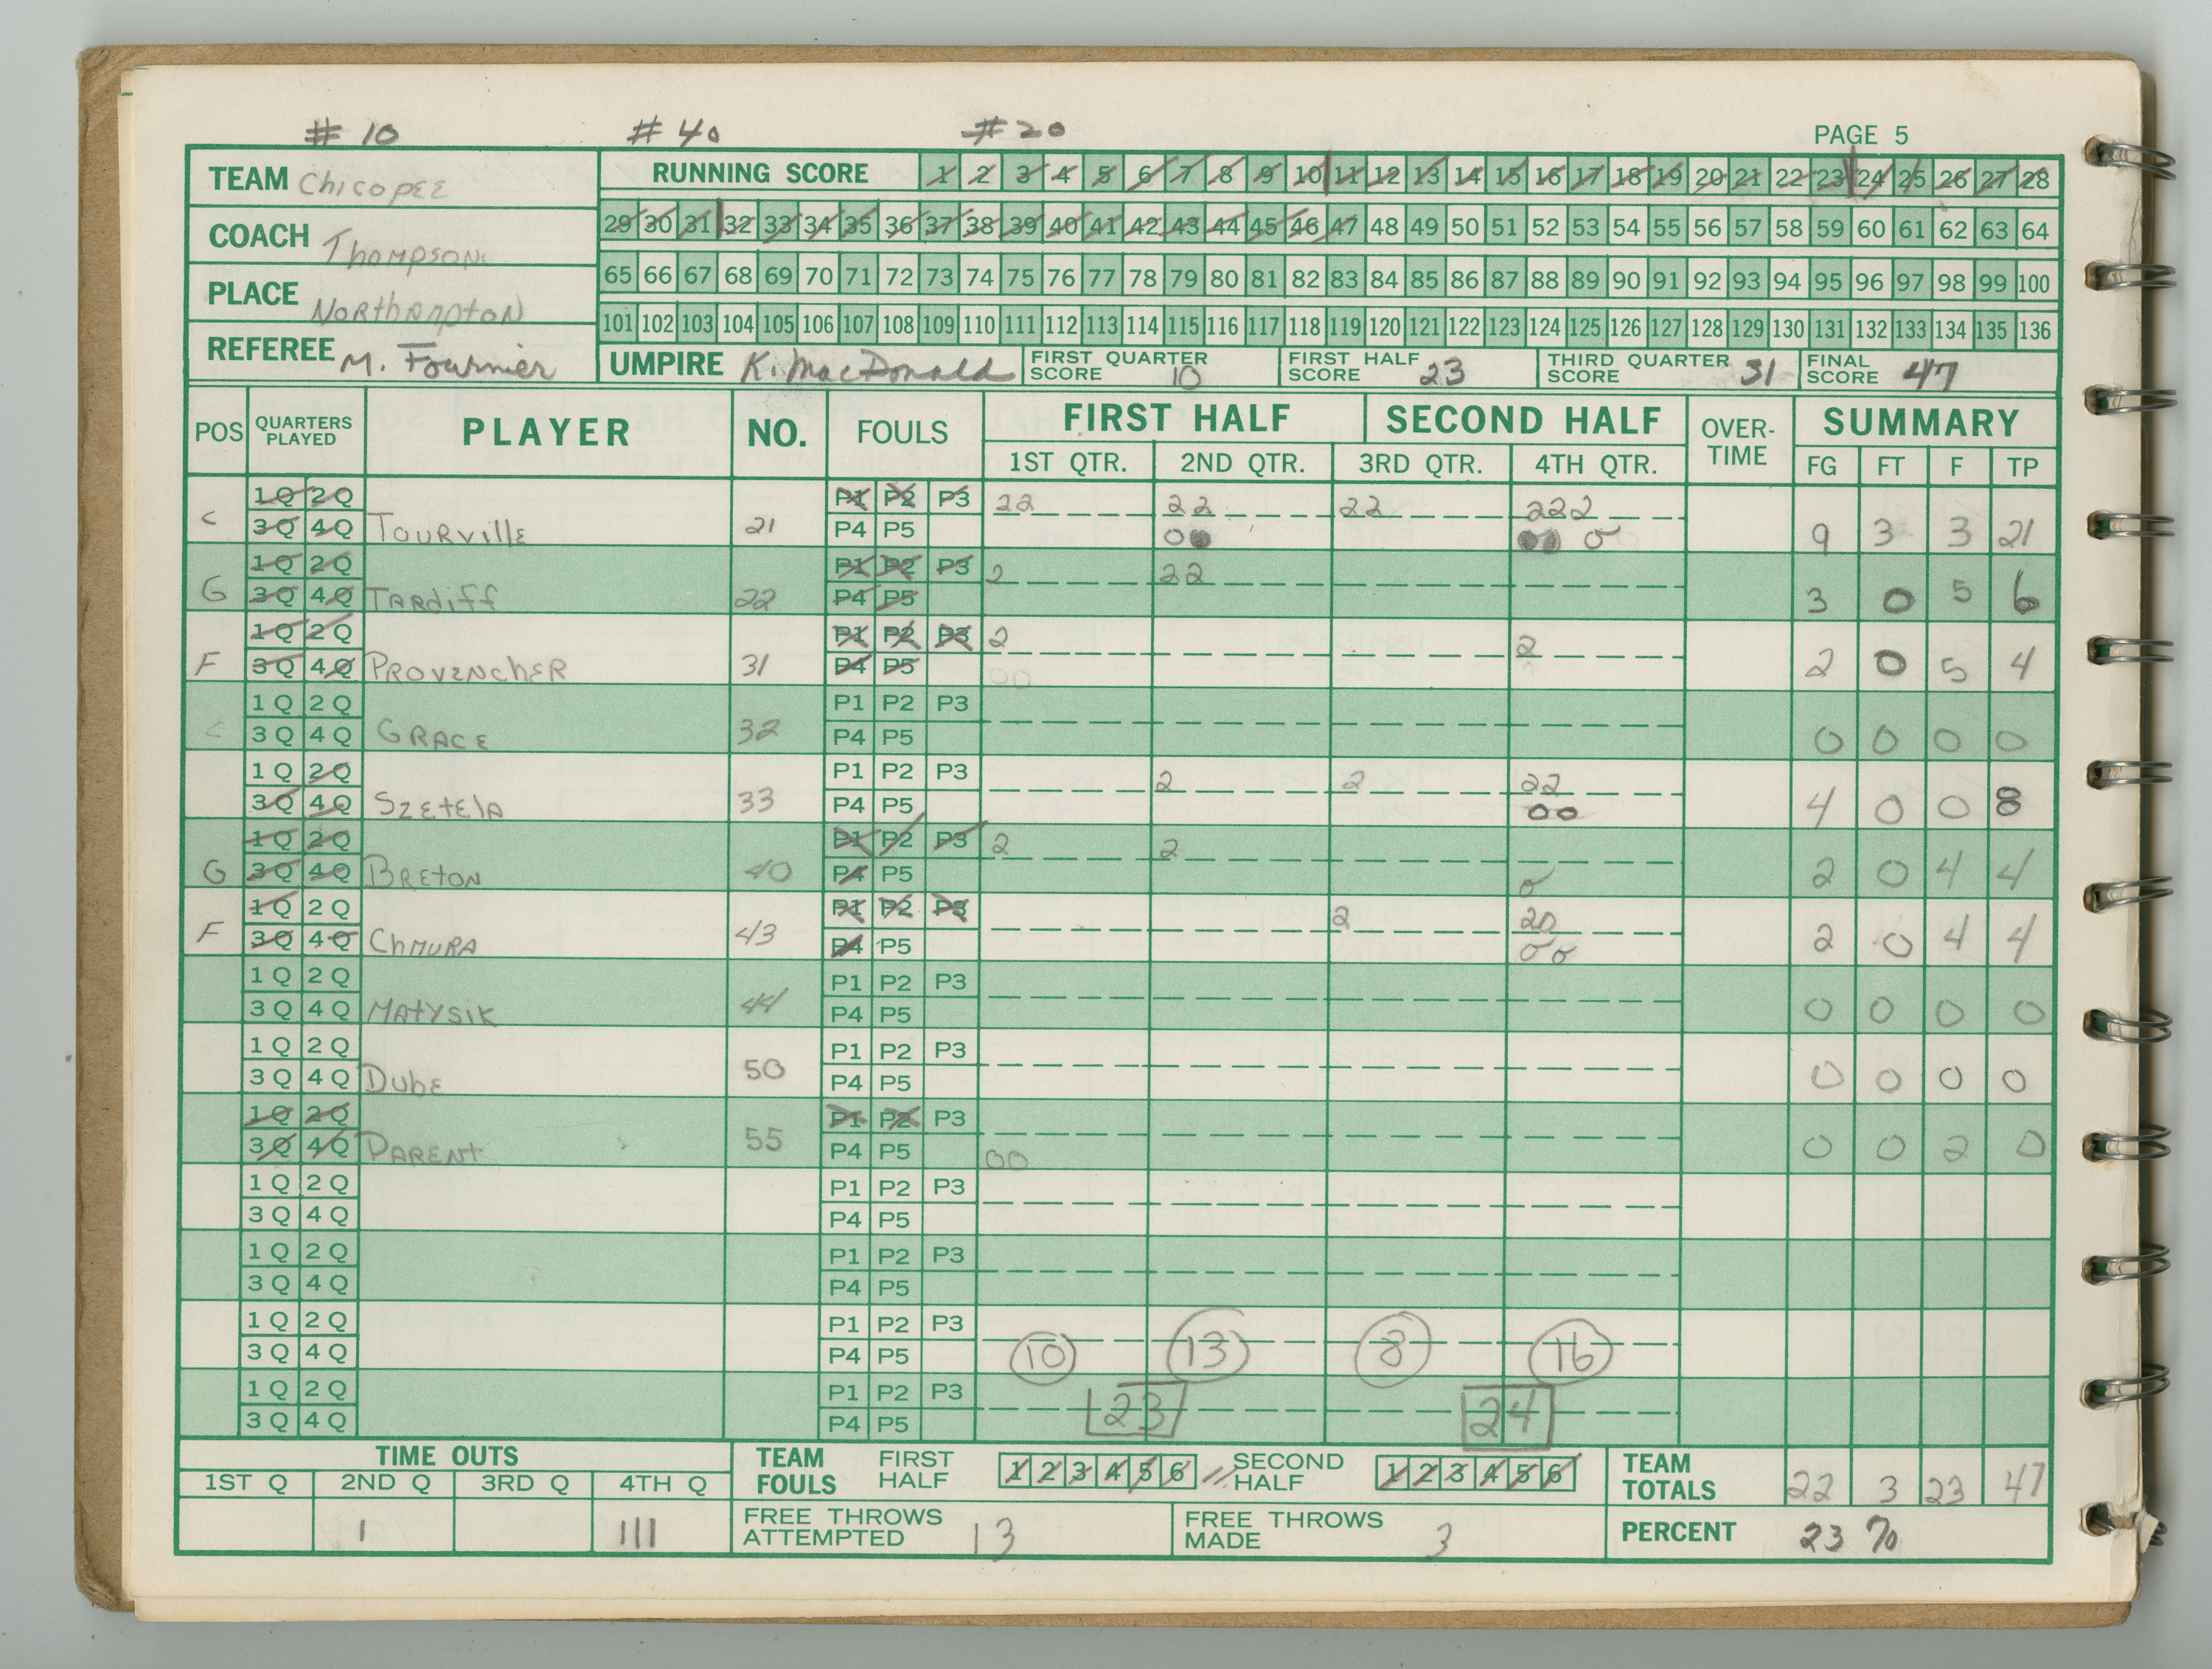 # 10 # 40 # 20
PAGE 5
TEAM Chicopee
RUNNING SCORE 1 2 3 4 5 6 7 8 9 10 11 12 13 14 15 16 17 18 19 20 21 22 23 24 25 26 27 28
29 30 31 32 33 34 35 36 37 38 39 40 41 42 43 44 45 46 47 48 49 50 51 52 53 54 55 56 57 58 59 60 61 62 63 64
COACH Thompson
65 66 67 68 69 70 71 72 73 74 75 76 77 78 79 80 81 82 83 84 85 86 87 88 89 90 91 92 93 94 95 96 97 98 99 100
PLACE Northampton
101 102 103 104 105 106 107 108 109 110 111 112 113 114 115 116 117 118 119 120 121 122 123 124 125 126 127 128 129 130 131 132 133 134 135 136
REFEREE M. Fournier
UMPIRE K. MacDonald
FIRST QUARTER SCORE 10
FIRST HALF SCORE 23
THIRD QUARTER SCORE 31
FINAL SCORE 47
POS QUARTERS PLAYED PLAYER NO. FOULS FIRST HALF SECOND HALF OVER-TIME SUMMARY
1ST QTR. 2ND QTR. 3RD QTR. 4TH QTR. FG FT F TP
1Q 2Q P1 P2 P3 22 22 22 222
C 3Q 4Q Tourville 21 P4 P5 00 00 0 9 3 3 21
1Q 2Q P1 P2 P3 2 22
G 3Q 4Q Tardiff 22 P4 P5 3 0 5 6
1Q 2Q P1 P2 P3 2 2
F 3Q 4Q Provencher 31 P4 P5 00 2 0 5 4
1Q 2Q P1 P2 P3
C 3Q 4Q Grace 32 P4 P5 0 0 0 0
1Q 2Q P1 P2 P3 2 2 22
3Q 4Q Szetela 33 P4 P5 00 4 0 0 8
1Q 2Q P1 P2 P3 2 2
G 3Q 4Q Breton 40 P4 P5 0 2 0 4 4
1Q 2Q P1 P2 P3 2 20
F 3Q 4Q Chmura 43 P4 P5 0 0 2 0 4 4
1Q 2Q P1 P2 P3
3Q 4Q Matysik 44 P4 P5 0 0 0 0
1Q 2Q P1 P2 P3
3Q 4Q Dube 50 P4 P5 0 0 0 0
1Q 2Q P1 P2 P3
3Q 4Q Parent 55 P4 P5 00 0 0 2 0
1Q 2Q P1 P2 P3
3Q 4Q P4 P5
1Q 2Q P1 P2 P3
3Q 4Q P4 P5
1Q 2Q P1 P2 P3
3Q 4Q P4 P5 10 13 8 16
1Q 2Q P1 P2 P3
3Q 4Q P4 P5 23 24
TIME OUTS
1ST Q 2ND Q 3RD Q 4TH Q
1 111
TEAM FOULS FIRST HALF 1 2 3 4 5 6 // SECOND HALF 1 2 3 4 5 6
TEAM TOTALS 22 3 23 47
FREE THROWS ATTEMPTED 13
FREE THROWS MADE 3
PERCENT 23 %